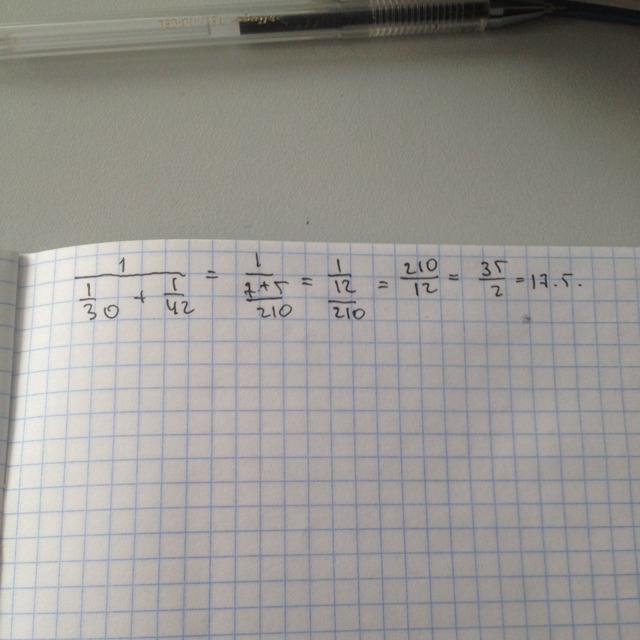 1/(1/30 + 1/42) = 1/((7+5)/210) = 1/(12/210) = 210/12 = 35/2 = 17.5.